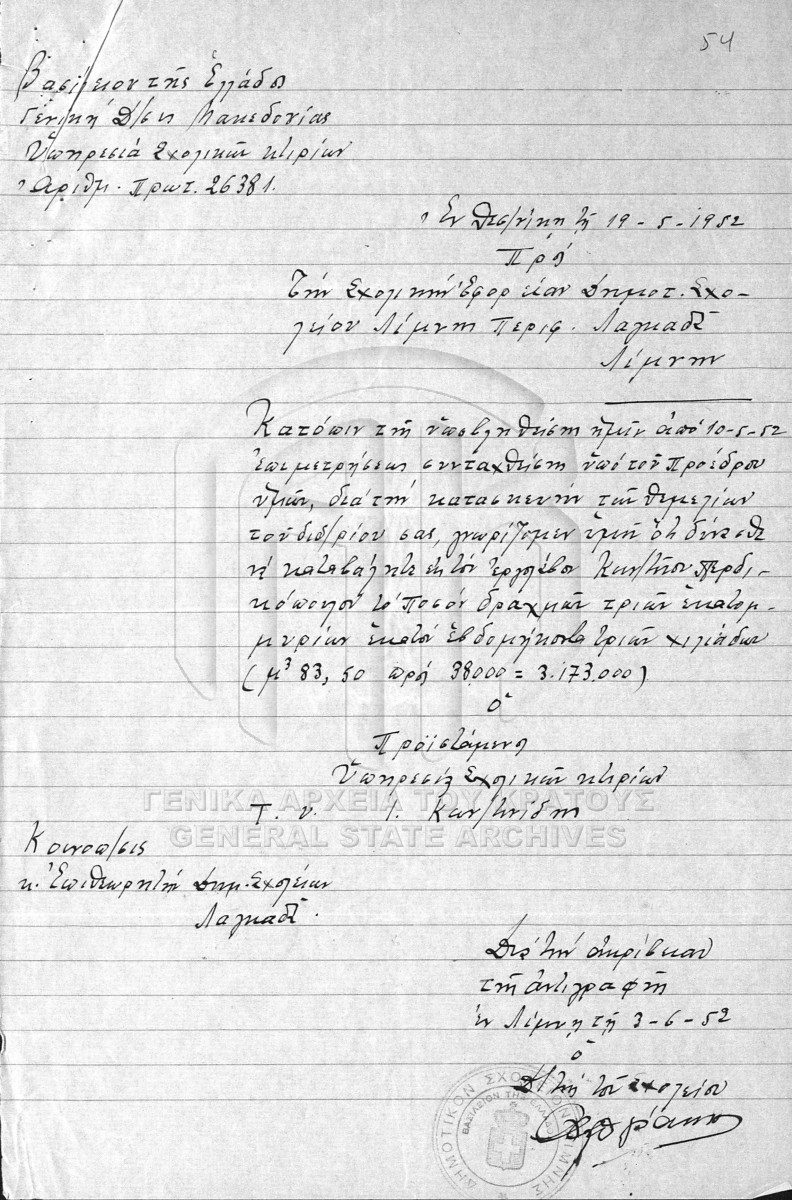 54
Βασίλειον τῆς Ἑλλάδος
Γενική Δ/σις Μακεδονίας
Ὑπηρεσία Σχολικῶν κτιρίων
Ἀριθμ. πρωτ. 26381.
Ἐν Θεσ/νίκη τῇ 19-5-1952
Πρός
Τήν Σχολικήν Ἐφορείαν Δημοτ. Σχο-
λείου Λίμνης Περιφ. Λαγκαδᾶ
Λίμνην
Κατόπιν τῆς ὑποβληθείσης ἡμῖν ἀπό 10-5-52
ἐπιμετρήσεως συνταχθείσης ὑπό τοῦ Προέδρου
ὑμῶν, διά τήν κατασκευήν τῶν θεμελίων
τοῦ διδ/ρίου σας, γνωρίζομεν ὑμῖν ὅτι δύνασθε
νά καταβάλητε εἰς τόν ἐργολάβον Κων/τῖνον Περδι-
κόπουλον τό ποσόν δραχμῶν τριῶν ἑκατομ-
μυρίων ἑκατόν ἑβδομήκοντα τριῶν χιλιάδων
(μ³ 83,50 πρός 38.000 = 3.173.000)
Ὁ
Προϊστάμενος
Ὑπηρεσίας Σχολικῶν κτιρίων
Τ. υ. Ι. Κων/τινίδης
ΓΕΝΙΚΑ ΑΡΧΕΙΑ ΤΟΥ ΚΡΑΤΟΥΣ
GENERAL STATE ARCHIVES
Κοινοπ/σις
κ. Ἐπιθεωρητήν Δημ. Σχολείων
Λαγκαδᾶ.
Διά τήν ἀκρίβειαν
τῆς ἀντιγραφῆς
ἐν Λίμνῃ τῇ 3-6-52
ὁ
Δ/τής τοῦ Σχολείου
ΔΗΜΟΤΙΚΟΝ ΣΧΟΛΕΙΟΝ ΛΙΜΝΗΣ
ΒΑΣΙΛΕΙΟΝ ΤΗΣ ΕΛΛΑΔΟΣ